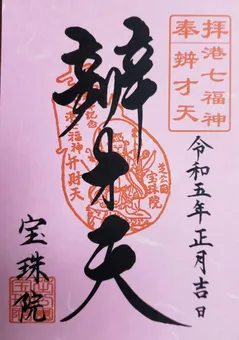 拝港七福神
奉辨才天
令和五年正月吉日
辨才天
記念
港七福神
弁財天
芝公園
宝珠院
宝珠院